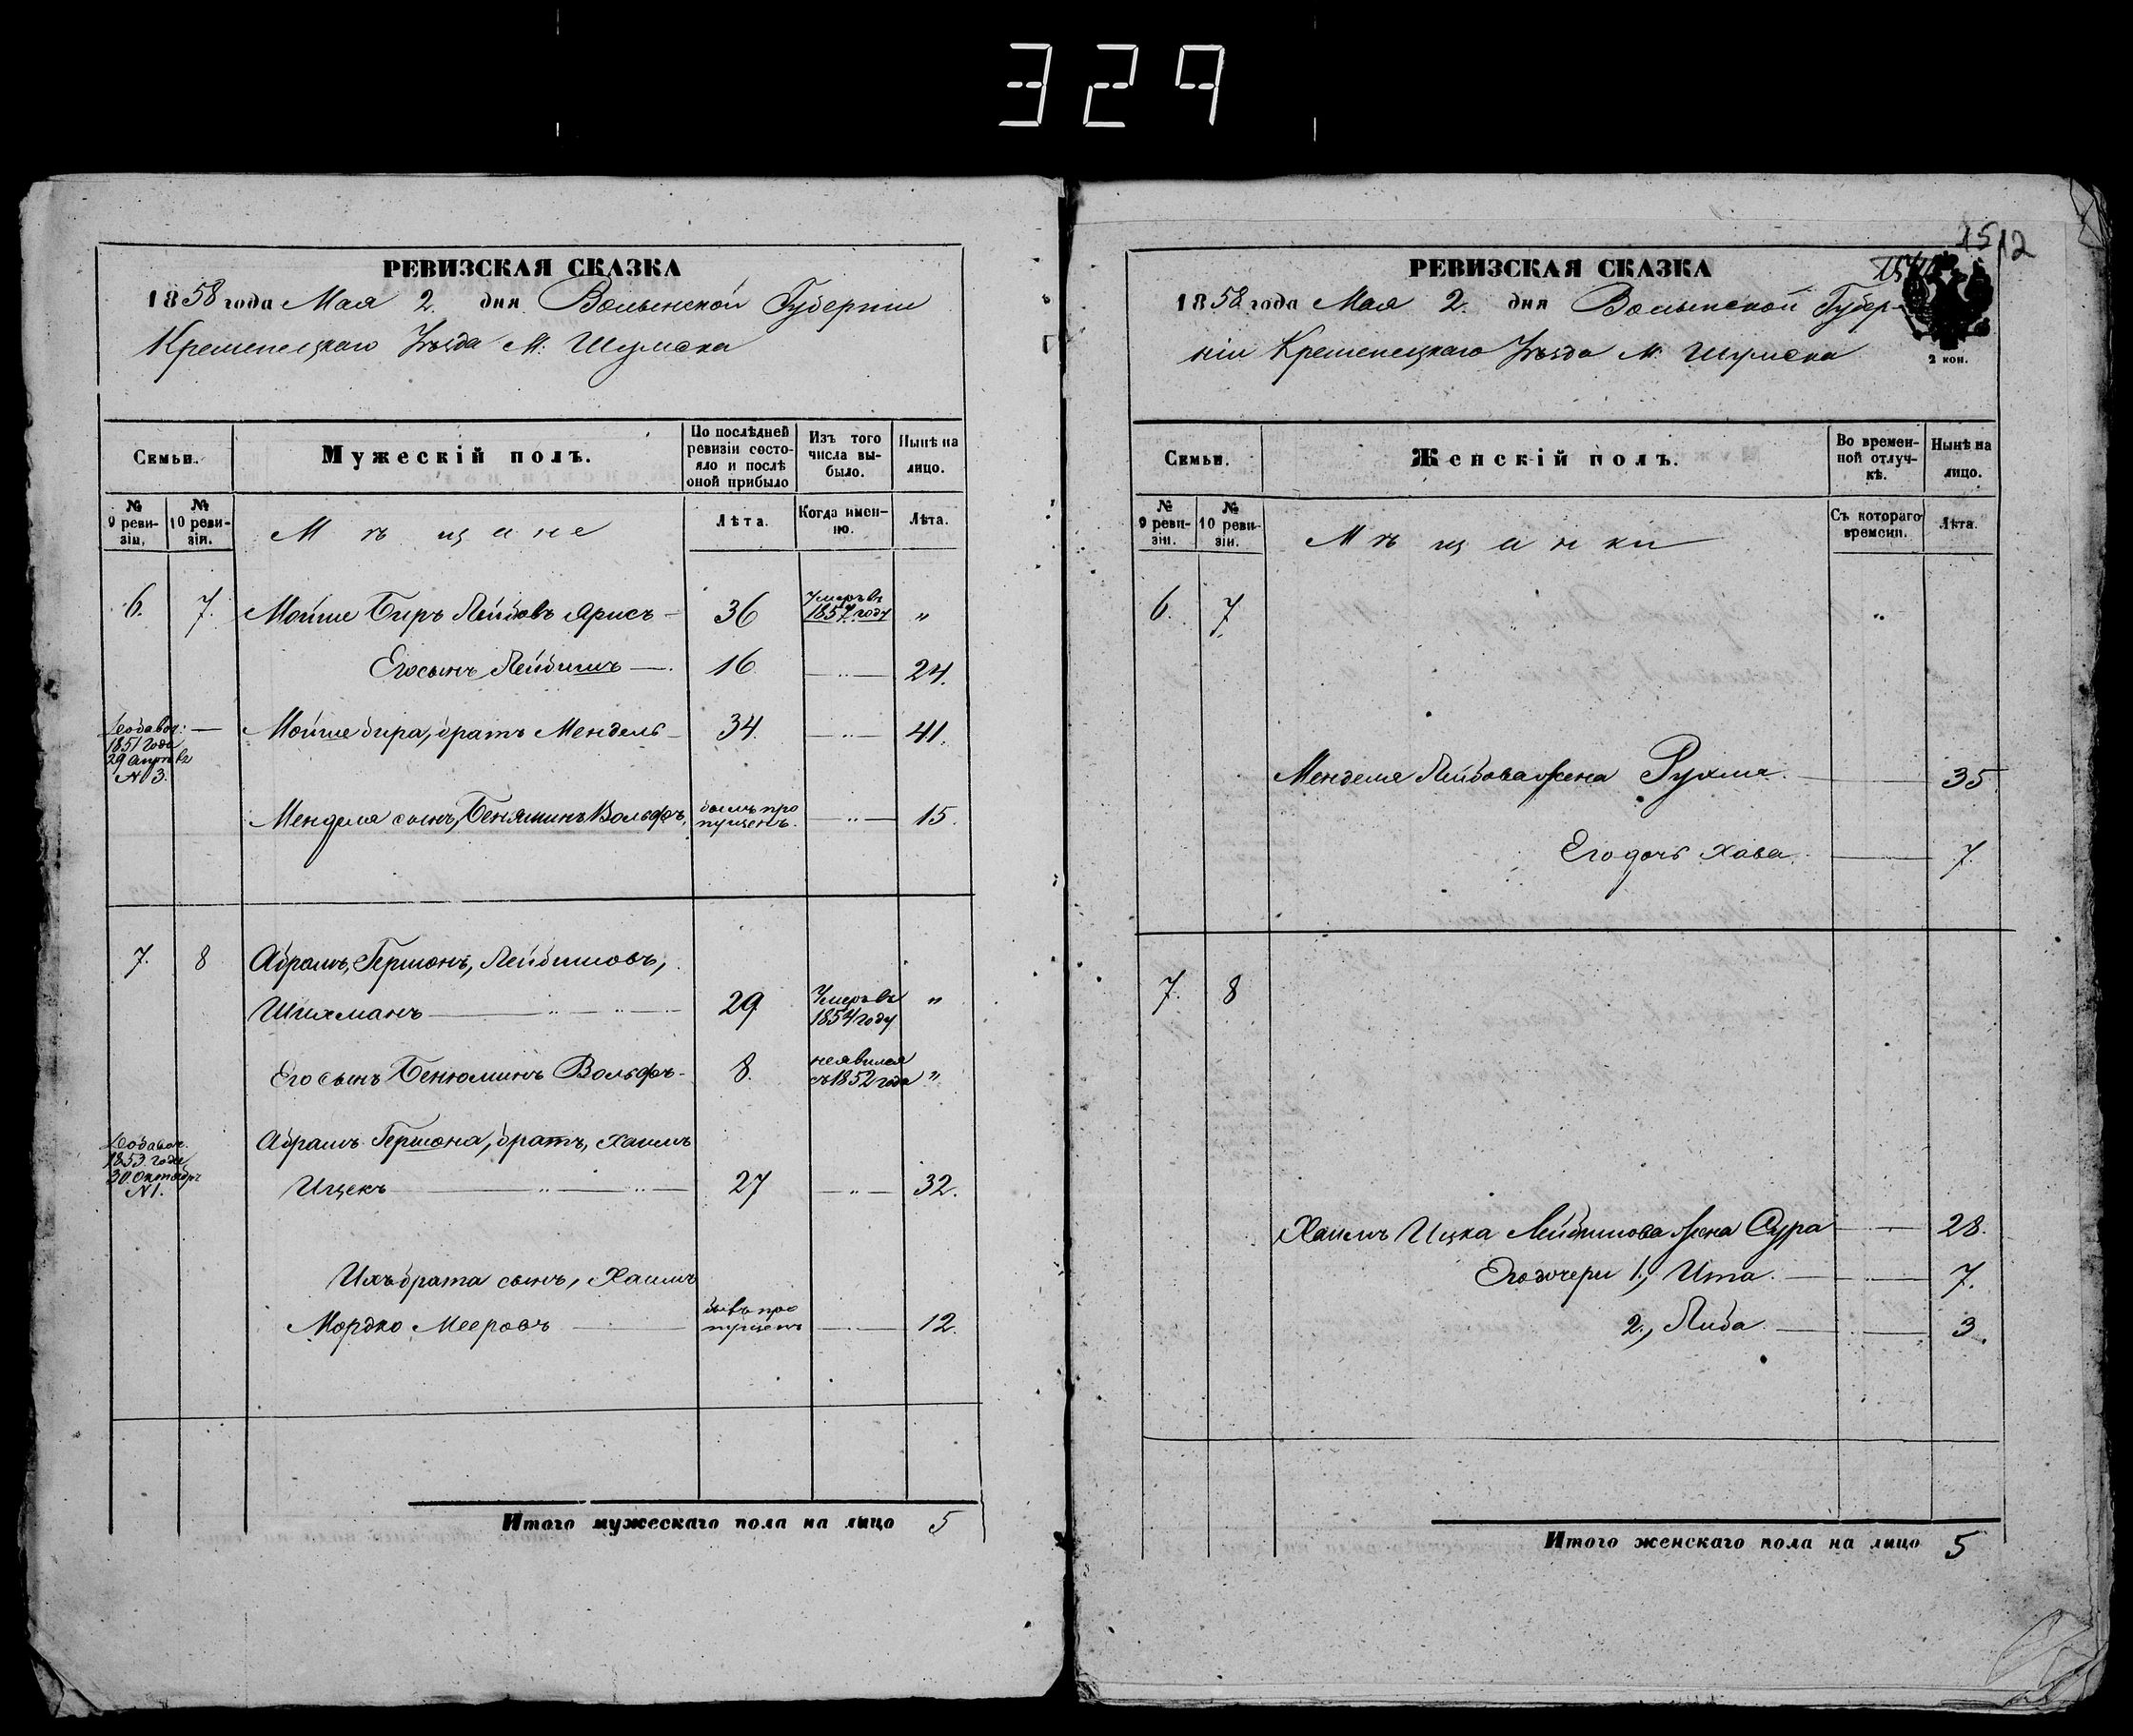 329
РЕВИЗСКАЯ СКАЗКА
1858 года Мая 2 дня Волынской Губерніи
Кременецкаго Уѣзда М. Шумска
Семьи.
Мужескій полъ.
По послѣдней ревизіи состояло и послѣ оной прибыло
Изъ того числа выбыло.
Нынѣ на лицо.
№ 9 ревизіи.
№ 10 ревизіи.
Мѣщане
Лѣта.
Когда именно.
Лѣта.
6. 7. Мойше Биръ Лейбовъ Ярисъ — 36 Умеръ въ 1857 году „
Его сынъ Лейбишъ — 16 — „ — 24.
Добавоч: 1851 года 29 Апрѣля №3. — Мойше бира, братъ Мендель — 34 — „ — 41.
Менделя сынъ, Беняминъ Вольфъ, былъ пропущенъ. — „ — 15.
7. 8 Абрамъ, Гершонъ, Лейбишовъ,
Шихманъ — „ — „ — 29 Умеръ въ 1854 году „
Его сынъ Бенюминъ Вольфъ — 8. неявился съ 1852 года „
Добавоч. 1853 года 30 Октября №1. Абрамъ Гершона, братъ, Хаимъ
Ицекъ — „ — „ — 27 — „ — 32.
Ихъ брата сынъ, Хаимъ
Мордко Мееровъ — бывъ пропущенъ — 12.
Итого мужескаго пола на лицо 5
15 12
РЕВИЗСКАЯ СКАЗКА
1858 года Мая 2. дня Волынской Губер-
ніи Кременецкаго Уѣзда М. Шумска
2 коп.
Семьи.
Женскій полъ.
Во временной отлучкѣ.
Нынѣ на лицо.
№ 9 ревизіи.
№ 10 ревизіи.
Мѣщанки
Съ котораго времени.
Лѣта.
6. 7 „
Менделя Лейбова жена Рухля — 35
Его дочь Хава. — 7.
7. 8
Хаимъ Ицка Лейбишова жена Сура — 28.
Его дочери 1, Ита. — 7.
2, Либа. — 3.
Итого женскаго пола на лицо 5